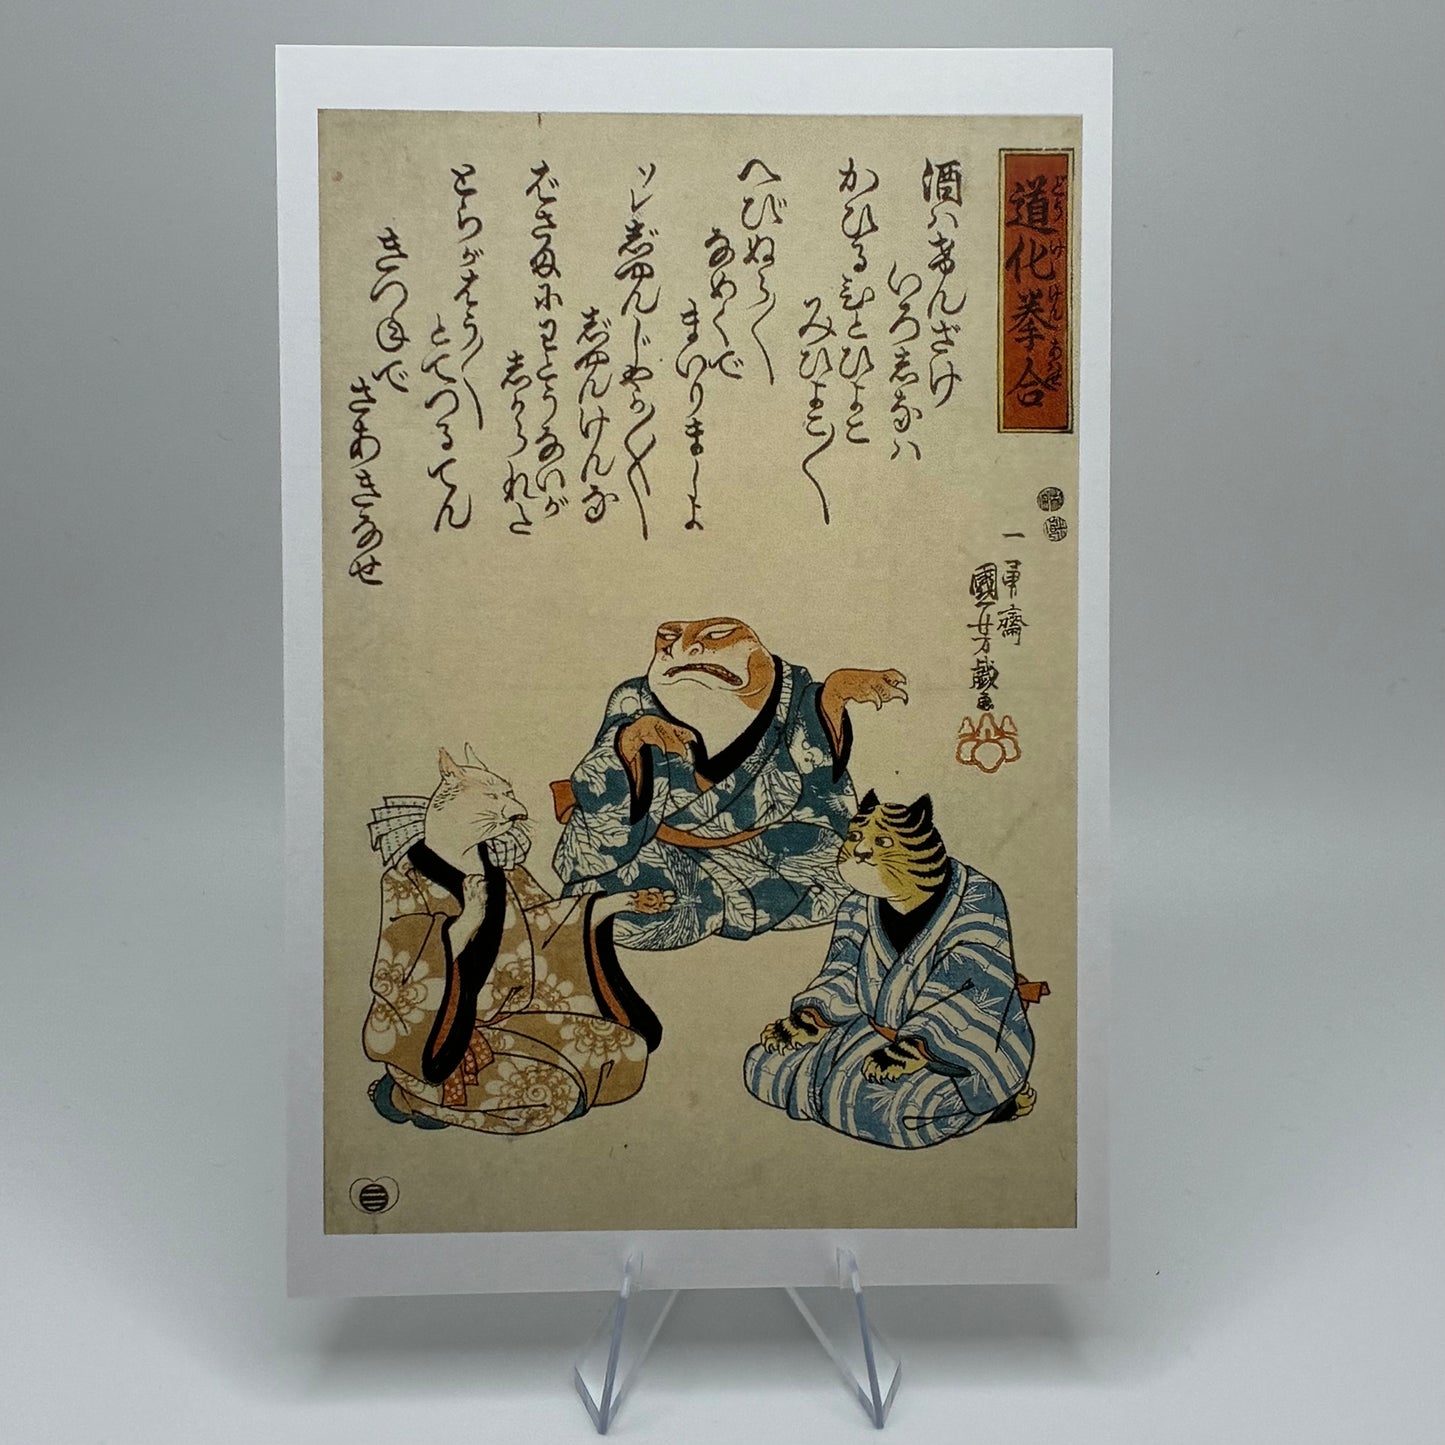 道化拳合
どうけけんあわせ
酒ハけんざけ
いろしなハ
かひるひとひよこ
みひよこ〱
へびぬら〱
なめくで
まいりましよ
ソレじゆんじやか〱〱
じゆんけんな
ばさまにわとうないが
しかられた
とらがはう〱
とてつるてん
きつねで
さあきなせ
一勇齋
國芳戯画